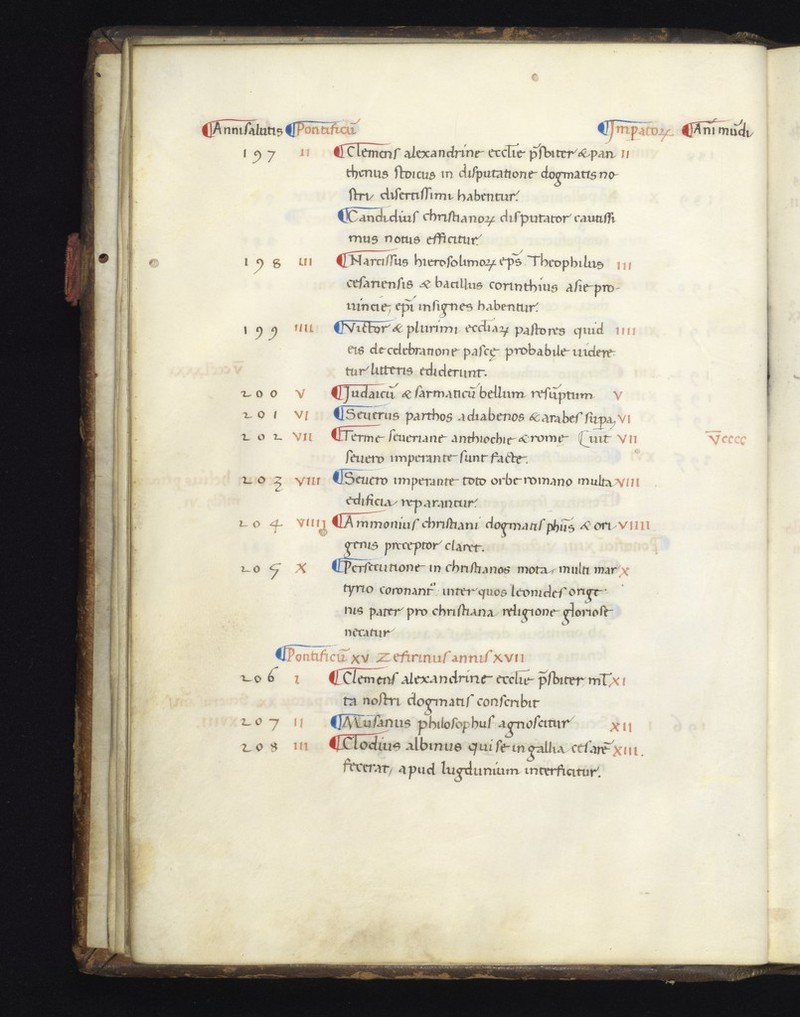 Anni salutis Pontificū Impatoꝝ Anī mūdi
197 II Clemens alexandrine ecclīe p̄sbiter & pan II
thenus stoicus in disputatione dogmatis no
stri disertissimi habentur.
Candidius christianoꝝ disputator cautissi
mus notus efficitur.
198 III Narcissus hierosolimoꝝ ep̄s Theophilus III
cesariensis & bacillus corinthius asie pro-
uincie, ep̄i insignes habentur.
199 IIII Victor & plurimi ecclīaꝝ pastores quid IIII
eis de celebratione pasce probabile uidere
tur litteris ediderunt.
200 V Judaicū & sarmaticū bellum resūptum V
201 VI Seuerus parthos adiabenos & arabes supa, VI
202 VII Terme seueriane anthiochie & rome (uit VII V̅cccc
seuero imperante sunt facte.
203 VIII Seuero imperante toto orbe romano multa VIII
edificia reparantur.
204 VIIII Ammonius christiani dogmatis phūs & ori VIIII
genis preceptor claret.
205 X Persecutione in christianos mota, multi mar X
tyrio coronantr̄ inter quos leonides orige
nis pater pro christiana religione gloriose
necatur
Pontificū XV Zefirinus annis XVII
206 I Clemens alexandrine ecclīe p̄sbiter ml̄ XI
ta nostri dogmatis conscribit
207 II Musanus philosophus agnoscitur XII
208 III Clodius albinus qui se in gallia cesarē XIII.
fecerat, apud lugdunium interficitur.